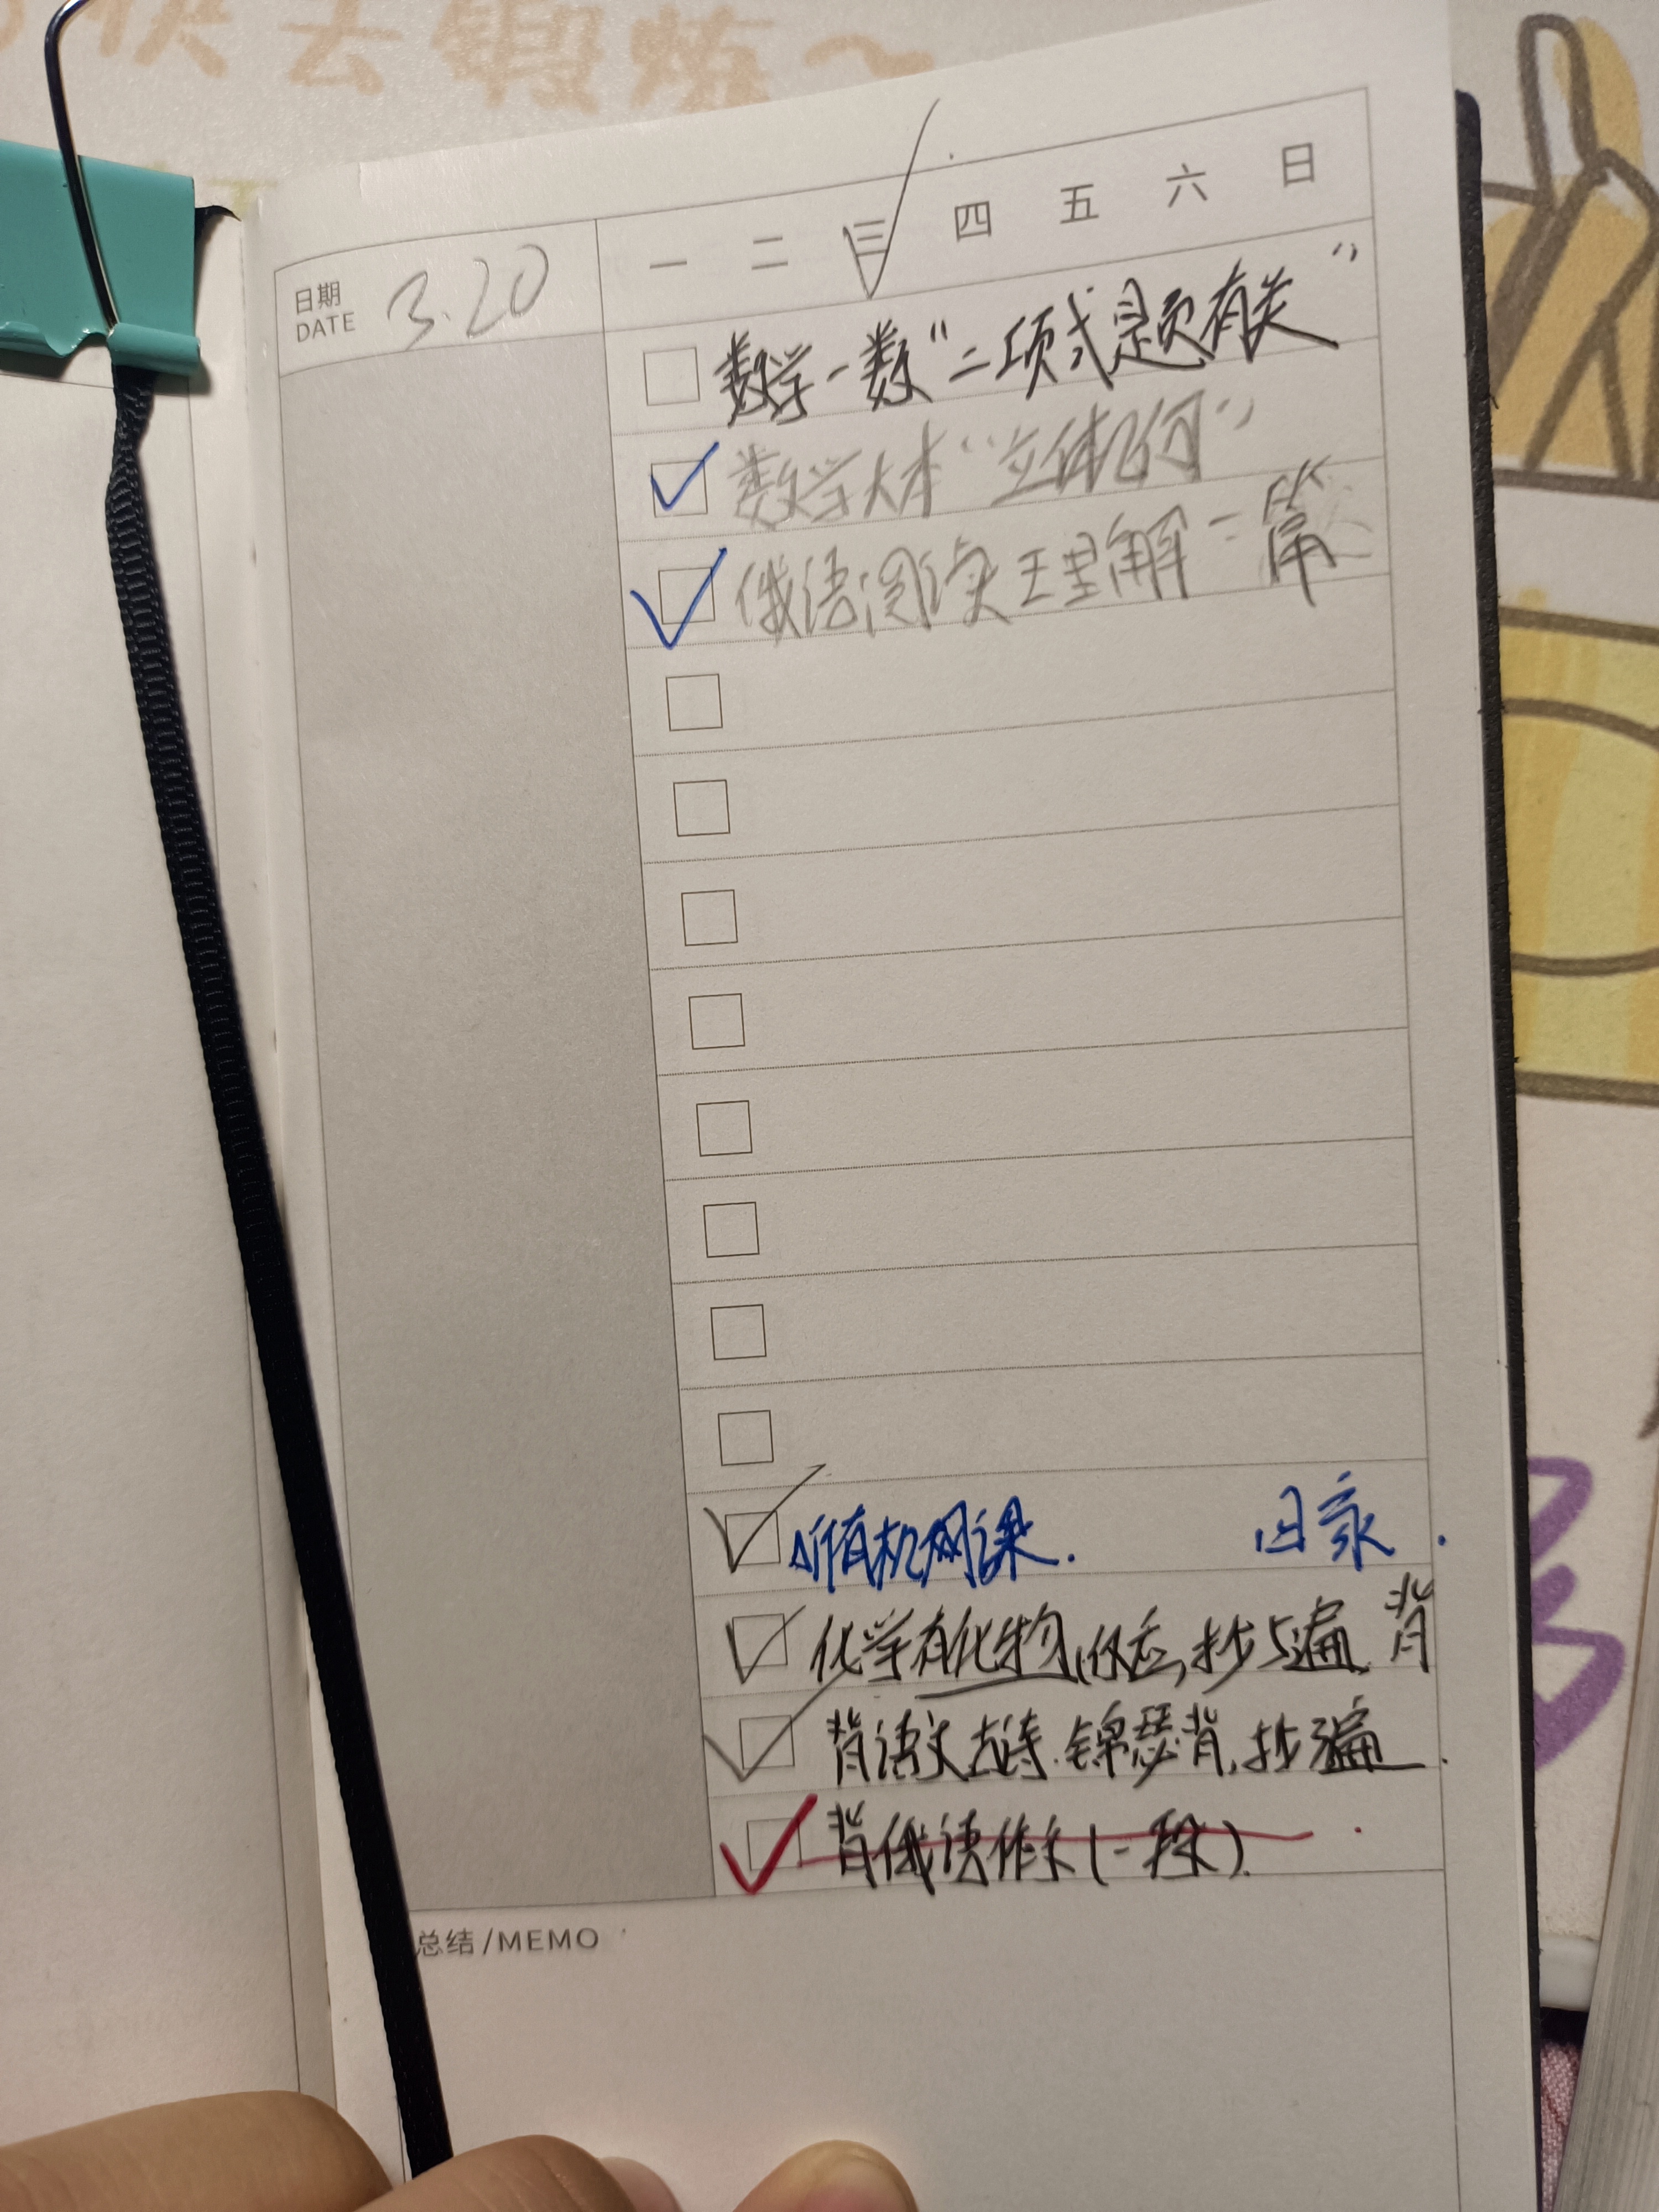 快去锻炼~
一 二 三 四 五 六 日
日期
DATE 3.20
数学一数“二项式题有关”
数学大本“立体几何”
俄语阅读理解一篇
听有机网课. 回家.
化学有化物,抄5遍 背
背语文古诗.锦瑟背,抄遍.
背俄语作文(一段).
总结/MEMO